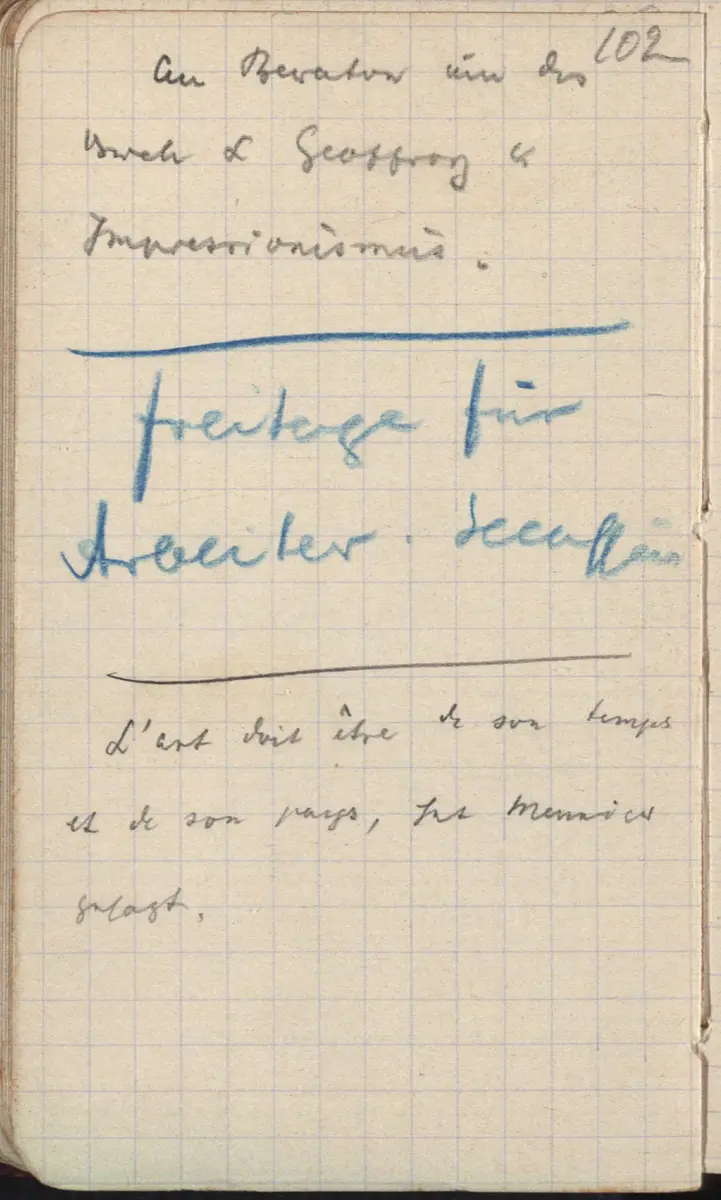 102
An um das
Buch L Geoffroy
Impressionismus.
freitage für
Arbeiter.
L'art doit être de son temps
et de son pays, hat Meunier
gesagt.